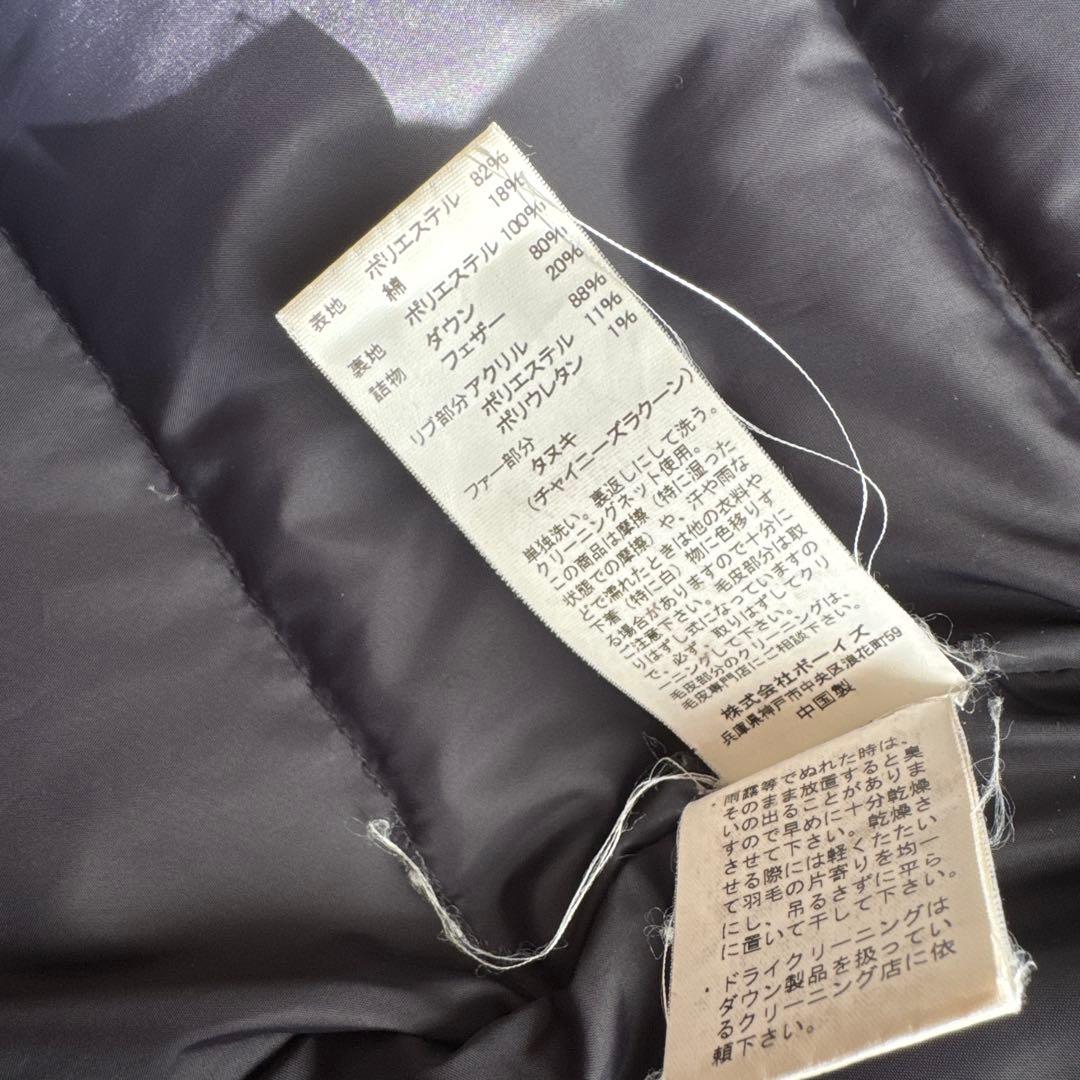 表地 ポリエステル 82%
綿 18%
裏地 ポリエステル 100%
詰物 ダウン 80%
フェザー 20%
リブ部分 アクリル 88%
ポリエステル 11%
ポリウレタン 1%
ファー部分
タヌキ
(チャイニーズラクーン)
単独洗い。裏返しにして洗う。
クリーニングネット使用。
この商品は摩擦(特に湿った
状態での摩擦)や、汗や雨な
どで濡れたときは他の衣料や
下着(特に白)物に色移りす
る場合がありますので十分に
ご注意下さい。毛皮部分は取
りはずし式になっていますの
で、必ず、取りはずしてクリ
ーニングして下さい。
毛皮部分のクリーニングは、
毛皮専門店にご相談下さい。
株式会社ボーイズ
兵庫県神戸市中央区浪花町59
中国製
・雨露等でぬれた時は、
そのまま放置すると奥
いの出ることがありま
すので早めに十分乾燥
させて下さい。乾燥さ
せる際には軽くたたい
て羽毛の片寄りを均一
にし、吊るさずに平ら
に置いて干して下さい。
・ドライクリーニングは
ダウン製品を扱ってい
るクリーニング店に依
頼下さい。